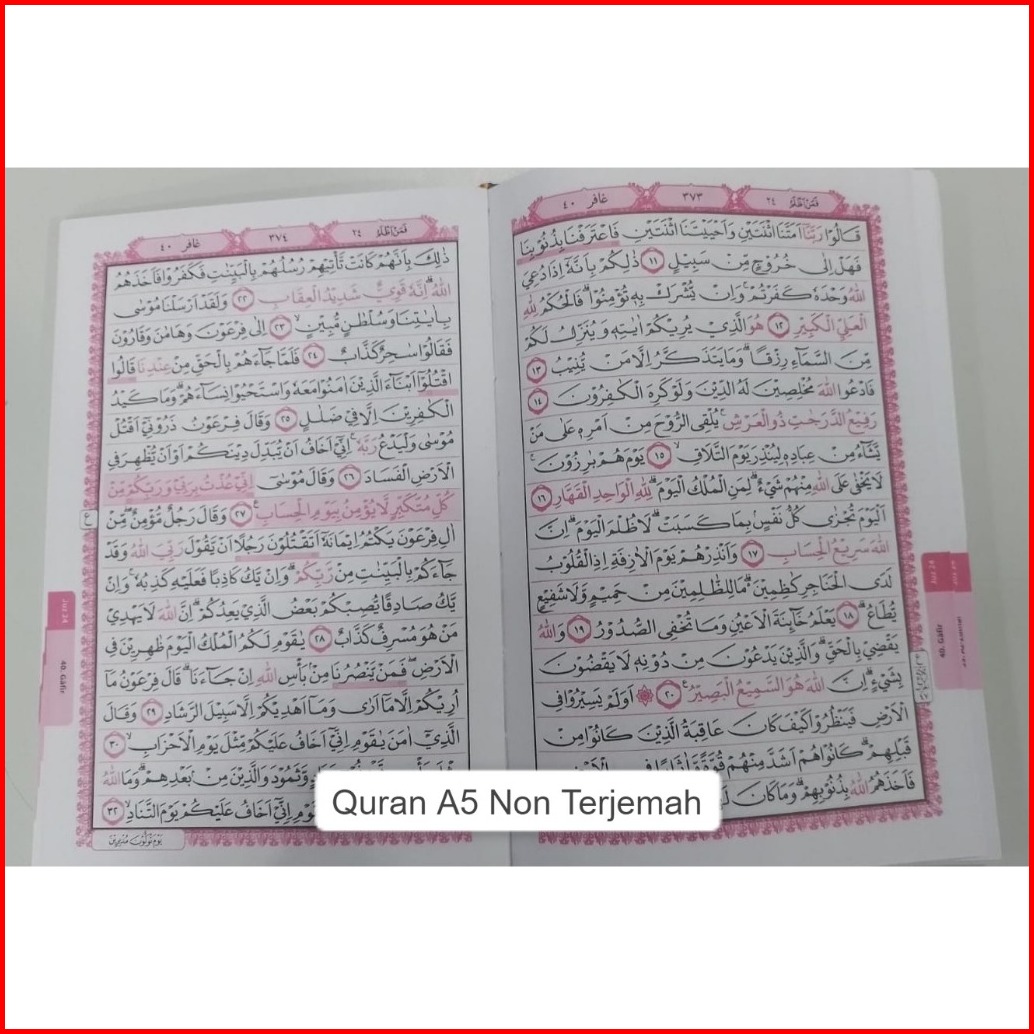 فمن اظلم ٢٤
٣٧٣
غافر ٤٠
قَالُوْا رَبَّنَآ اَمَتَّنَا اثْنَتَيْنِ وَاَحْيَيْتَنَا اثْنَتَيْنِ فَاعْتَرَفْنَا بِذُنُوْبِنَا
فَهَلْ اِلٰى خُرُوْجٍ مِّنْ سَبِيْلٍ ١١ ذٰلِكُمْ بِاَنَّهٗٓ اِذَا دُعِيَ
اللّٰهُ وَحْدَهٗ كَفَرْتُمْۚ وَاِنْ يُّشْرَكْ بِهٖ تُؤْمِنُوْاۗ فَالْحُكْمُ لِلّٰهِ
الْعَلِيِّ الْكَبِيْرِ ١٢ هُوَ الَّذِيْ يُرِيْكُمْ اٰيٰتِهٖ وَيُنَزِّلُ لَكُمْ
مِّنَ السَّمَاۤءِ رِزْقًاۗ وَمَا يَتَذَكَّرُ اِلَّا مَنْ يُّنِيْبُ ١٣
فَادْعُوا اللّٰهَ مُخْلِصِيْنَ لَهُ الدِّيْنَ وَلَوْ كَرِهَ الْكٰفِرُوْنَ ١٤
رَفِيْعُ الدَّرَجٰتِ ذُو الْعَرْشِۚ يُلْقِى الرُّوْحَ مِنْ اَمْرِهٖ عَلٰى مَنْ
يَّشَاۤءُ مِنْ عِبَادِهٖ لِيُنْذِرَ يَوْمَ التَّلَاقِۙ ١٥ يَوْمَ هُمْ بَارِزُوْنَ ۚ
لَا يَخْفٰى عَلَى اللّٰهِ مِنْهُمْ شَيْءٌۗ لِمَنِ الْمُلْكُ الْيَوْمَۗ لِلّٰهِ الْوَاحِدِ الْقَهَّارِ ١٦
اَلْيَوْمَ تُجْزٰى كُلُّ نَفْسٍۢ بِمَا كَسَبَتْۗ لَا ظُلْمَ الْيَوْمَۗ اِنَّ
اللّٰهَ سَرِيْعُ الْحِسَابِ ١٧ وَاَنْذِرْهُمْ يَوْمَ الْاٰزِفَةِ اِذِ الْقُلُوْبُ
لَدَى الْحَنَاجِرِ كٰظِمِيْنَۗ مَا لِلظّٰلِمِيْنَ مِنْ حَمِيْمٍ وَّلَا شَفِيْعٍ
يُّطَاعُۗ ١٨ يَعْلَمُ خَاۤىِٕنَةَ الْاَعْيُنِ وَمَا تُخْفِى الصُّدُوْرُ ١٩ وَاللّٰهُ
يَقْضِيْ بِالْحَقِّۗ وَالَّذِيْنَ يَدْعُوْنَ مِنْ دُوْنِهٖ لَا يَقْضُوْنَ
بِشَيْءٍۗ اِنَّ اللّٰهَ هُوَ السَّمِيْعُ الْبَصِيْرُ ࣖ ٢٠ ۞ اَوَلَمْ يَسِيْرُوْا فِى
الْاَرْضِ فَيَنْظُرُوْا كَيْفَ كَانَ عَاقِبَةُ الَّذِيْنَ كَانُوْا مِنْ
قَبْلِهِمْۗ كَانُوْا هُمْ اَشَدَّ مِنْهُمْ قُوَّةً وَّاٰثَارًا
فَاَخَذَهُمُ اللّٰهُ بِذُنُوْبِهِمْۗ وَمَا كَانَ
Juz 24
40. Gāfir
فمن اظلم ٢٤
٣٧٤
غافر ٤٠
ذٰلِكَ بِاَنَّهُمْ كَانَتْ تَّأْتِيْهِمْ رُسُلُهُمْ بِالْبَيِّنٰتِ فَكَفَرُوْا فَاَخَذَهُمُ
اللّٰهُ ۗاِنَّهٗ قَوِيٌّ شَدِيْدُ الْعِقَابِ ٢٢ وَلَقَدْ اَرْسَلْنَا مُوْسٰى
بِاٰيٰتِنَا وَسُلْطٰنٍ مُّبِيْنٍۙ ٢٣ اِلٰى فِرْعَوْنَ وَهَامٰنَ وَقَارُوْنَ
فَقَالُوْا سٰحِرٌ كَذَّابٌ ٢٤ فَلَمَّا جَاۤءَهُمْ بِالْحَقِّ مِنْ عِنْدِنَا قَالُوا
اقْتُلُوْٓا اَبْنَاۤءَ الَّذِيْنَ اٰمَنُوْا مَعَهٗ وَاسْتَحْيُوْا نِسَاۤءَهُمْۗ وَمَا كَيْدُ
الْكٰفِرِيْنَ اِلَّا فِيْ ضَلٰلٍ ٢٥ وَقَالَ فِرْعَوْنُ ذَرُوْنِيْٓ اَقْتُلْ
مُوْسٰى وَلْيَدْعُ رَبَّهٗۚ اِنِّيْٓ اَخَافُ اَنْ يُّبَدِّلَ دِيْنَكُمْ اَوْ اَنْ يُّظْهِرَ فِى
الْاَرْضِ الْفَسَادَ ٢٦ وَقَالَ مُوْسٰىٓ اِنِّيْ عُذْتُ بِرَبِّيْ وَرَبِّكُمْ مِّنْ
كُلِّ مُتَكَبِّرٍ لَّا يُؤْمِنُ بِيَوْمِ الْحِسَابِ ࣖ ٢٧ وَقَالَ رَجُلٌ مُّؤْمِنٌۖ مِّنْ
اٰلِ فِرْعَوْنَ يَكْتُمُ اِيْمَانَهٗٓ اَتَقْتُلُوْنَ رَجُلًا اَنْ يَّقُوْلَ رَبِّيَ اللّٰهُ وَقَدْ
جَاۤءَكُمْ بِالْبَيِّنٰتِ مِنْ رَّبِّكُمْۗ وَاِنْ يَّكُ كَاذِبًا فَعَلَيْهِ كَذِبُهٗۚ وَاِنْ
يَّكُ صَادِقًا يُّصِبْكُمْ بَعْضُ الَّذِيْ يَعِدُكُمْۗ اِنَّ اللّٰهَ لَا يَهْدِيْ
مَنْ هُوَ مُسْرِفٌ كَذَّابٌ ٢٨ يٰقَوْمِ لَكُمُ الْمُلْكُ الْيَوْمَ ظٰهِرِيْنَ فِى
الْاَرْضِۖ فَمَنْ يَّنْصُرُنَا مِنْۢ بَأْسِ اللّٰهِ اِنْ جَاۤءَنَاۗ قَالَ فِرْعَوْنُ مَآ
اُرِيْكُمْ اِلَّا مَآ اَرٰى وَمَآ اَهْدِيْكُمْ اِلَّا سَبِيْلَ الرَّشَادِ ٢٩ وَقَالَ
الَّذِيْٓ اٰمَنَ يٰقَوْمِ اِنِّيْٓ اَخَافُ عَلَيْكُمْ مِّثْلَ يَوْمِ الْاَحْزَابِۙ ٣٠
وَّثَمُوْدَ وَالَّذِيْنَ مِنْۢ بَعْدِهِمْۗ وَمَا اللّٰهُ
اِنِّيْٓ اَخَافُ عَلَيْكُمْ يَوْمَ التَّنَادِۙ ٣٢
يَوْمَ تُوَلُّوْنَ مُدْبِرِيْنَ
ع
Juz 24
40. Gāfir
Quran A5 Non Terjemah